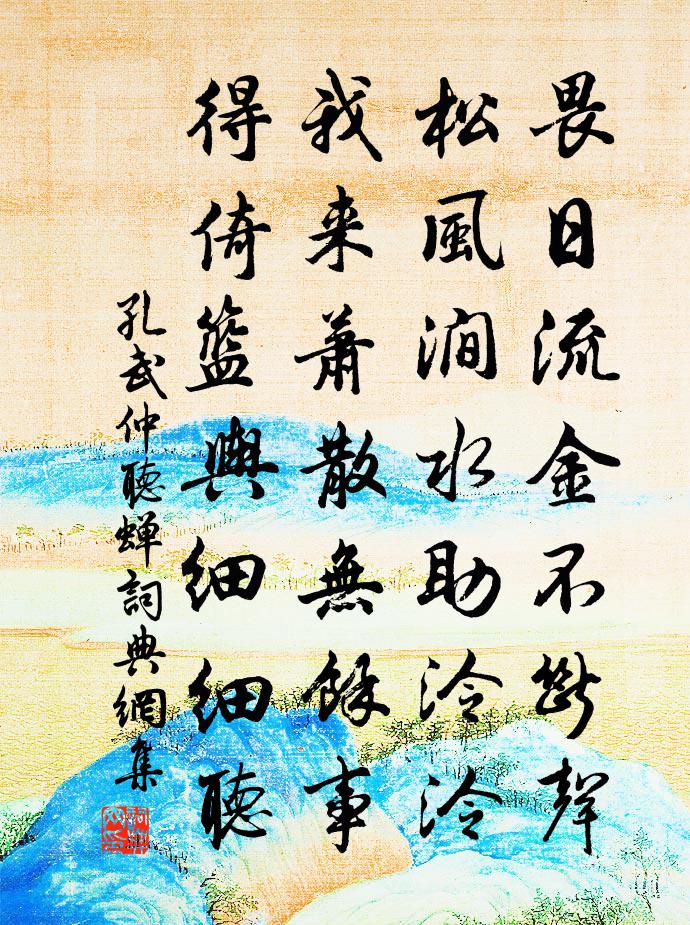 畏日流金不斷聲
松風澗水助泠泠
我来蕭散無餘事
得倚籃輿細細聽
孔武仲聽蟬詞典網集